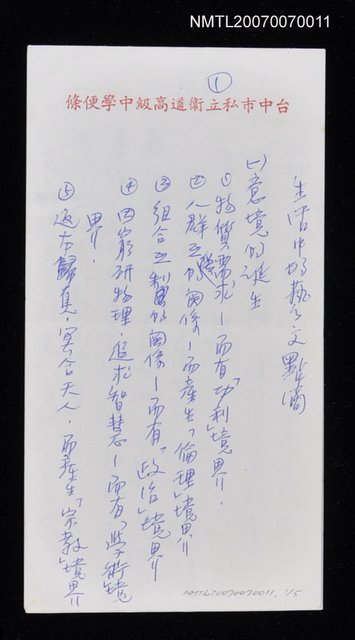 NMTL20070070011
①
台中市私立衛道高級中學便條
生活中的藝文點滴
(一)意境的誕生
①物質需求—而有「功利」境界.
②人群互際的關係—而產生「倫理」境界
③組合互制的關係—而有「政治」境界
④四窮研物理.追求智慧—而有「學術」境
界.
⑤返本歸真.冥合天人.而產生「宗教」境界
NMTL20070070011, 1/5